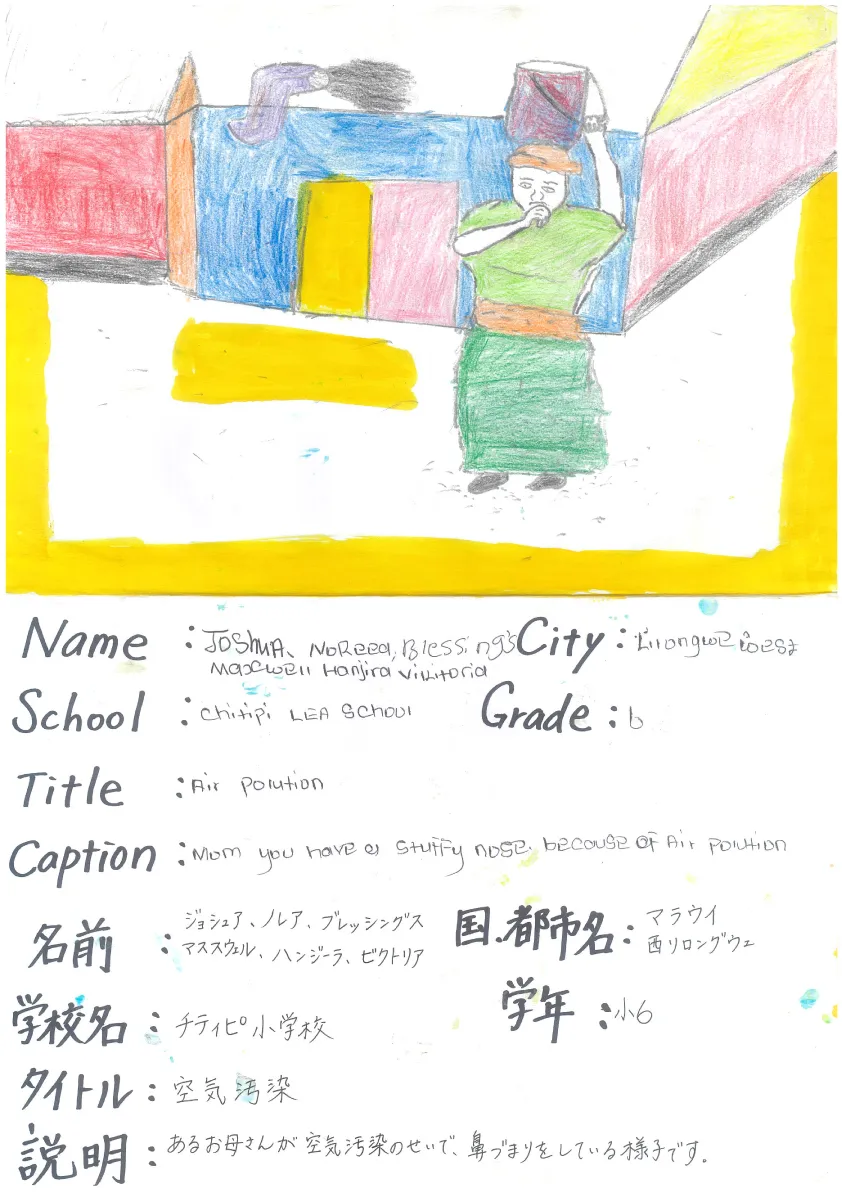 Name : JOSHUA, NoReea, Blessing's City : Lilongwe west
Maxwell Hanjira Vikitoria
School : Chitipi LEA School Grade : 6
Title : Air polution
Caption : Mom you have a stuffy nose. becouse of Air polution
名前 : ジョシュア、ノレア、ブレッシングス 国.都市名 : マラウイ
マススウェル、ハンジーラ、ビクトリア 西リロングウェ
学校名 : チティピ小学校 学年 : 小6
タイトル : 空気汚染
説明 : あるお母さんが空気汚染のせいで、鼻づまりをしている様子です。